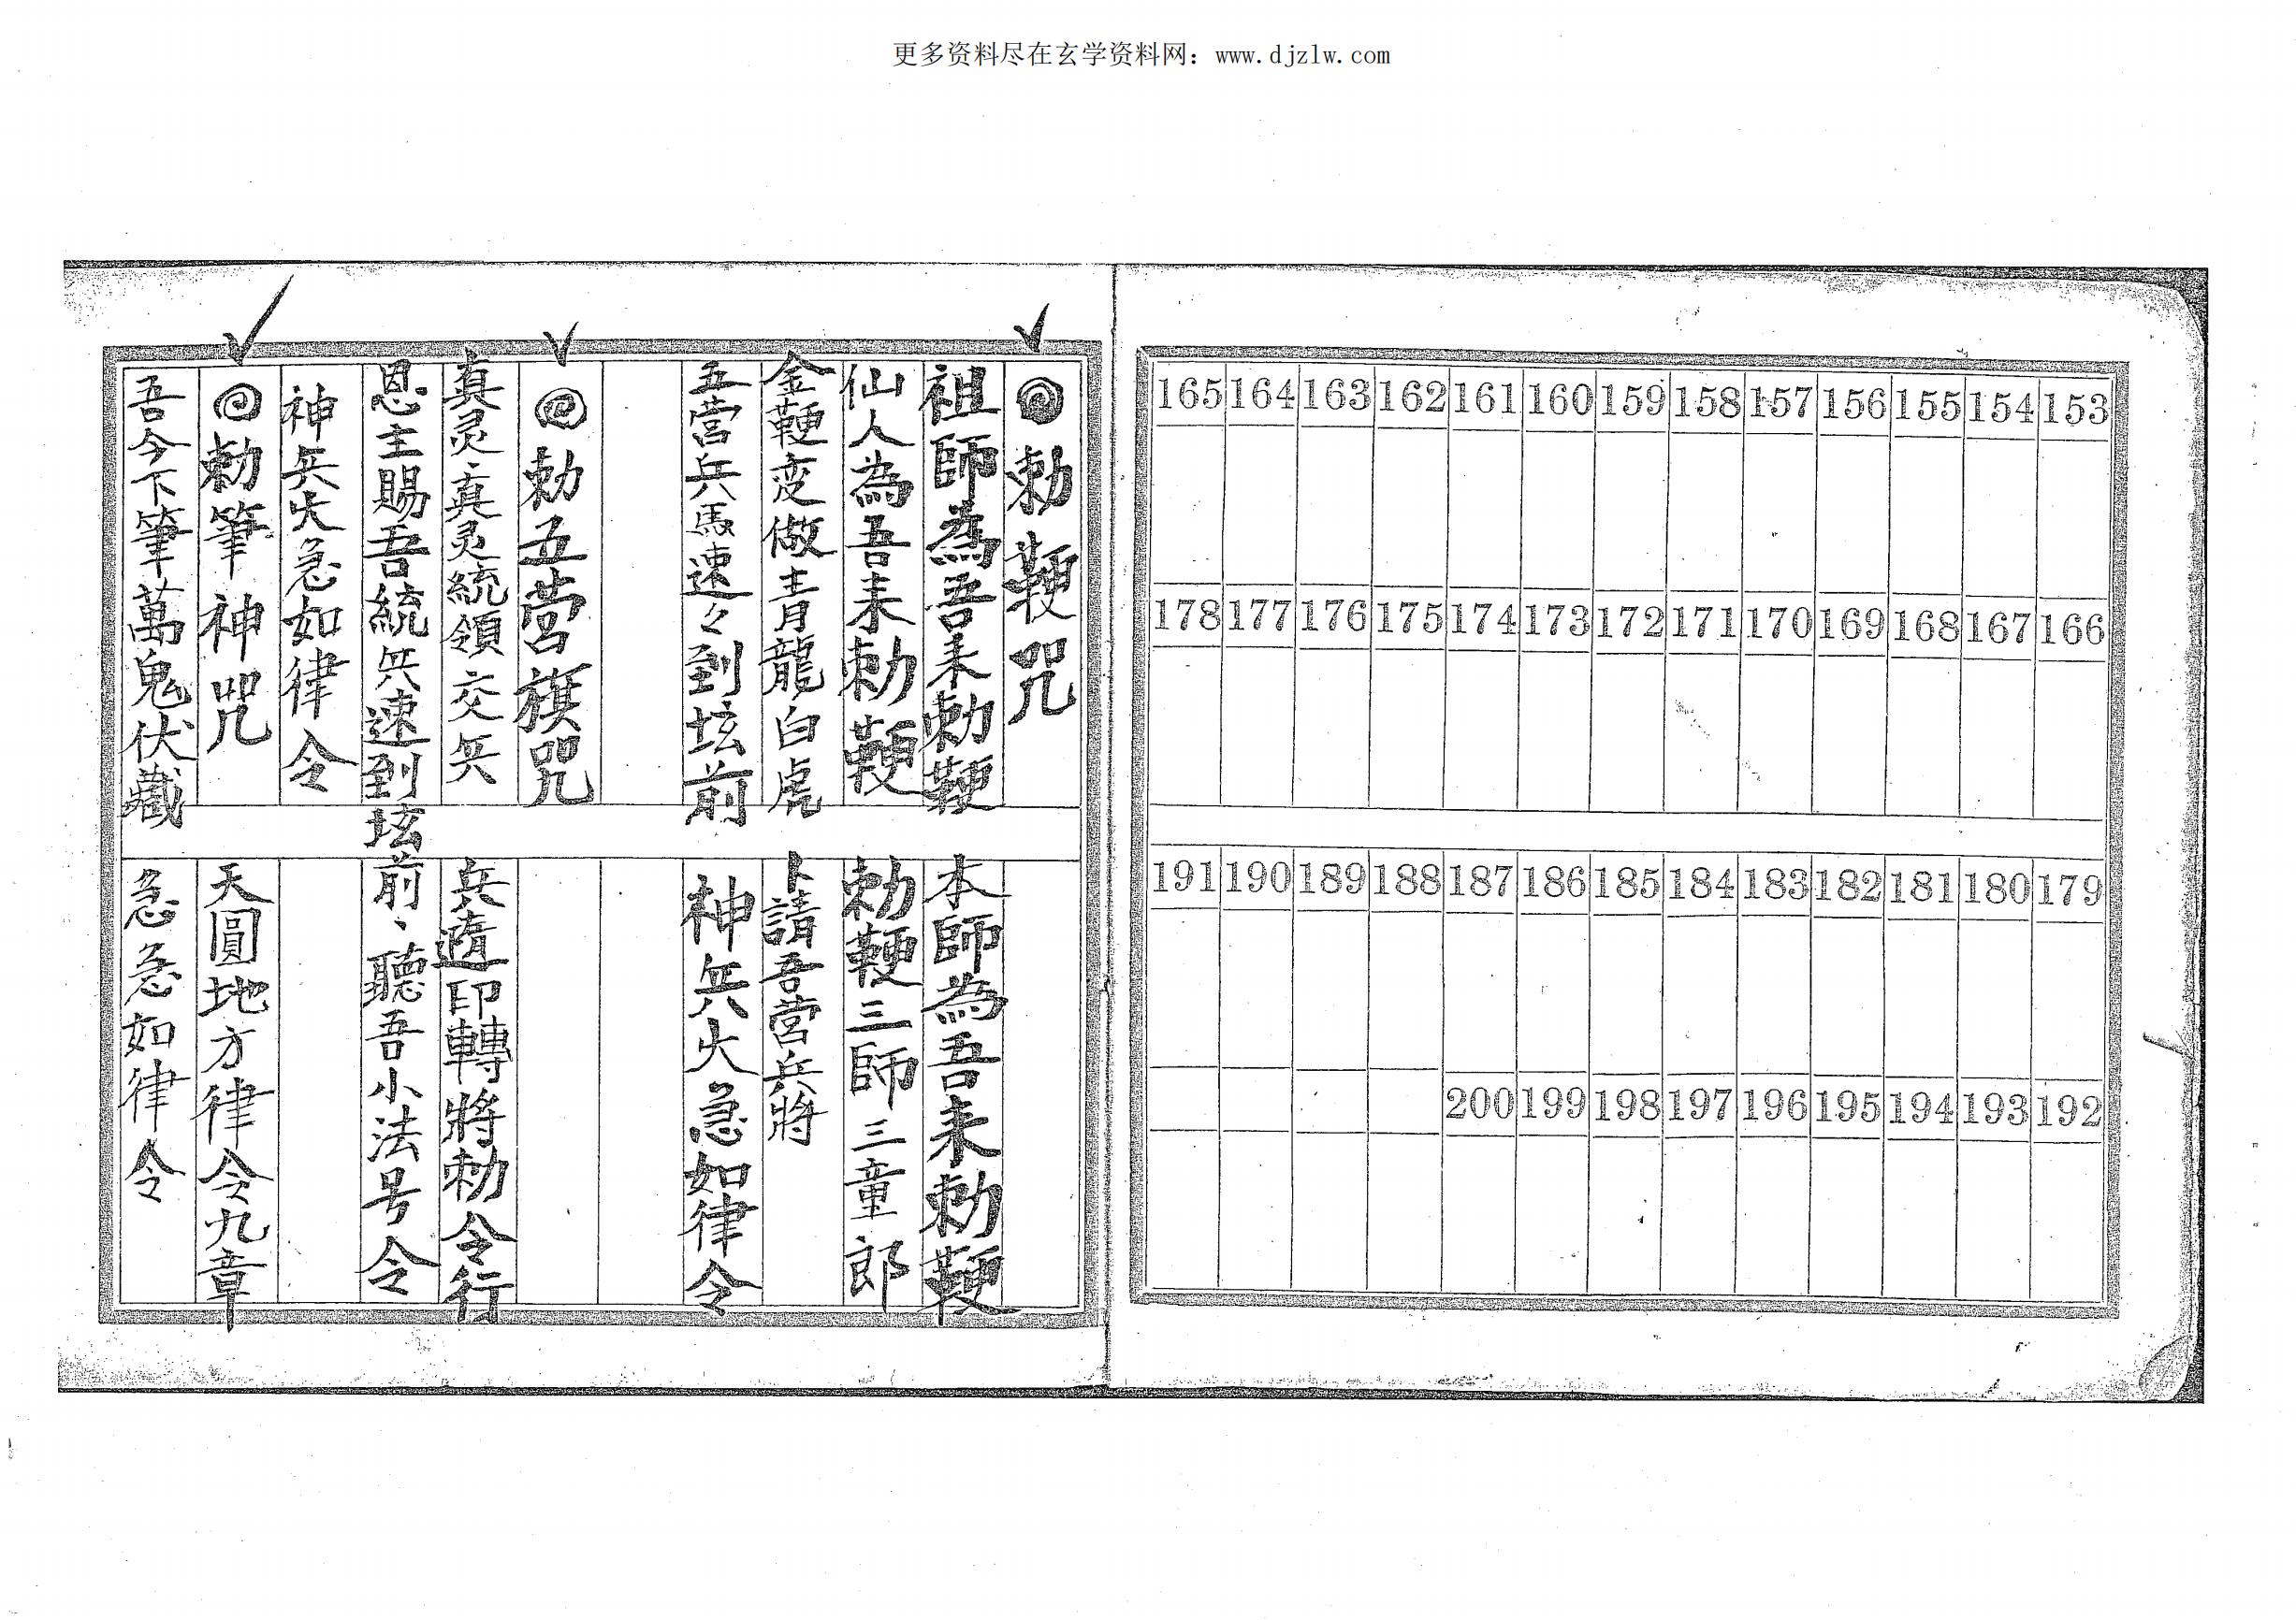 更多资料尽在玄学资料网：www.djzlw.com
153 154 155 156 157 158 159 160 161 162 163 164 165
166 167 168 169 170 171 172 173 174 175 176 177 178
179 180 181 182 183 184 185 186 187 188 189 190 191
192 193 194 195 196 197 198 199 200
勅鞭咒
祖師為吾来勅鞭 本師為吾来勅鞭
仙人為吾来勅鞭 勅鞭三師三童郎
金鞭变做青龍白虎 卜請吾营兵將
五营兵馬速々到坛前 神兵火急如律令
勅五营旗咒
真灵真灵統領交兵 兵遁印轉將勅令行
恩主賜吾統兵速到坛前、聽吾小法号令
神兵火急如律令
勅筆神咒 天圓地方律令九章
吾今下筆萬鬼伏藏 急急如律令